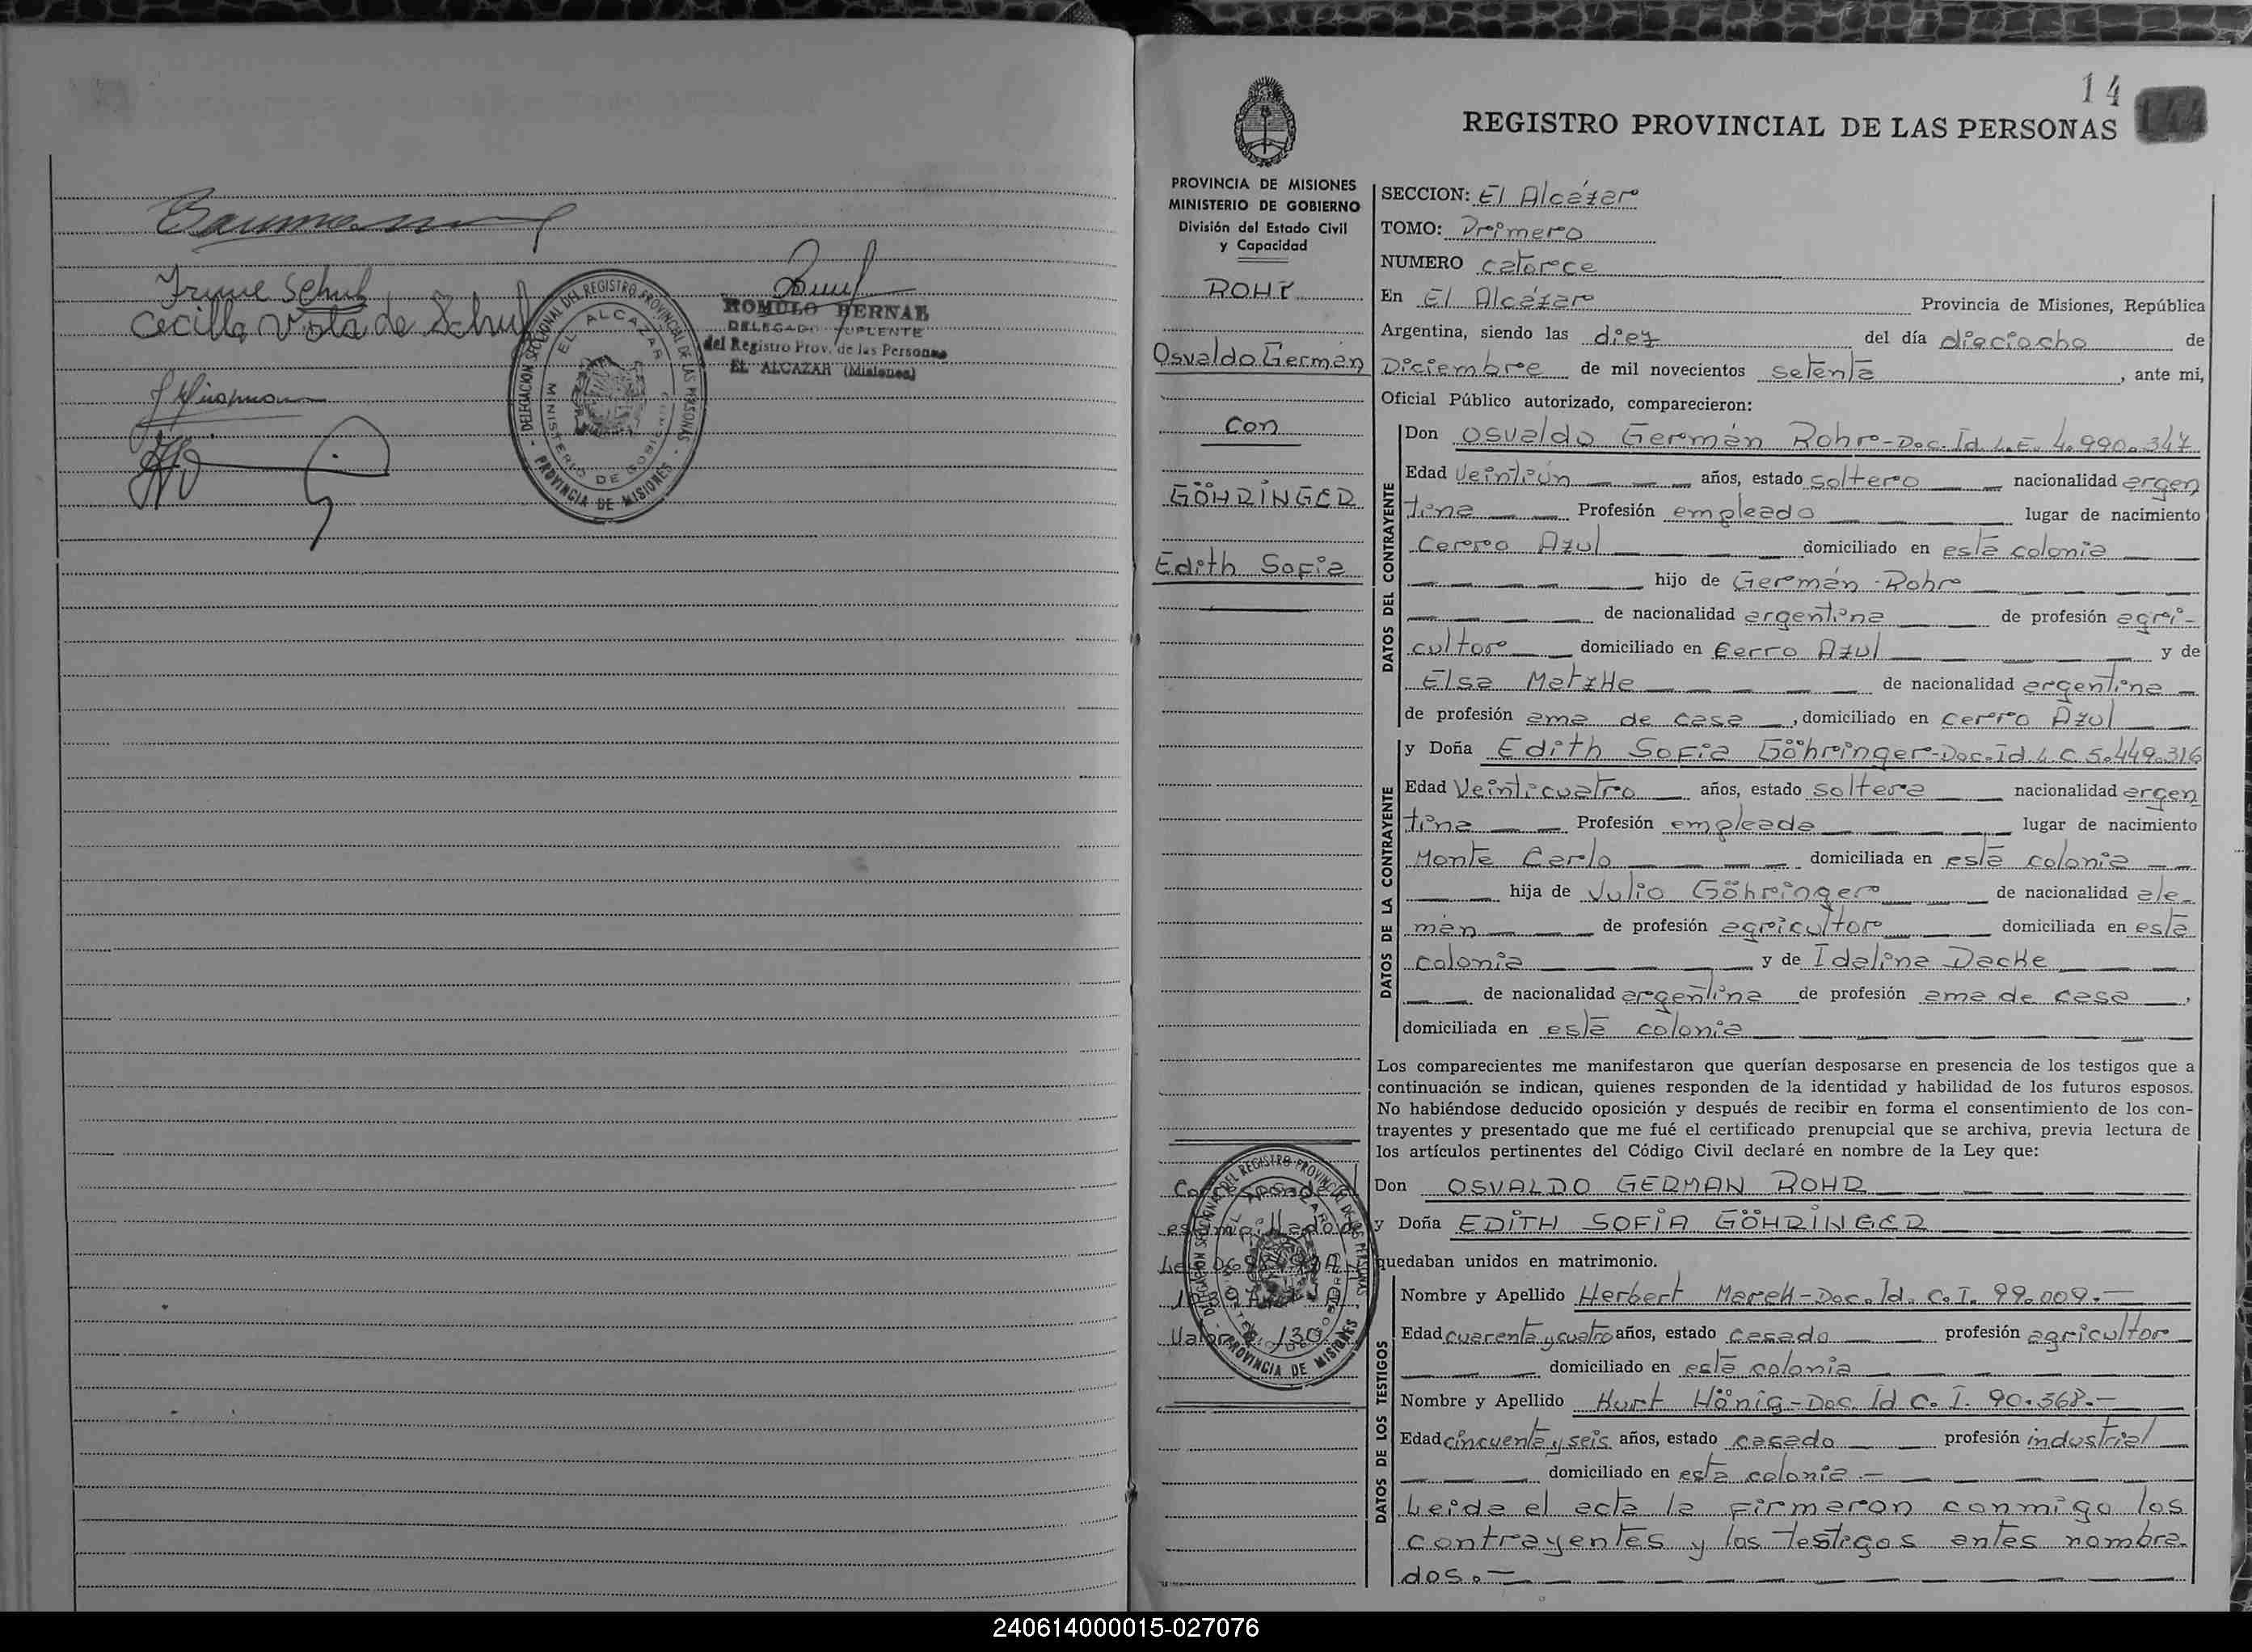 Irene Schulz
Cecilla Viola de Schulz
DELEGACION SECCIONAL DEL REGISTRO PROVINCIAL DE LAS PERSONAS
EL ALCAZAR
MINISTERIO DE GOBIERNO
PROVINCIA DE MISIONES
ROMULO BERNAL
DELEGADO SUPLENTE
del Registro Prov. de las Personas
EL ALCAZAR (Misiones)
14
REGISTRO PROVINCIAL DE LAS PERSONAS
PROVINCIA DE MISIONES
MINISTERIO DE GOBIERNO
División del Estado Civil
y Capacidad
ROHR
Osvaldo Germán
con
GÖHRINGER
Edith Sofia
DELEGACION SECCIONAL DEL REGISTRO PROVINCIAL DE LAS PERSONAS
PROVINCIA DE MISIONES
SECCION: El Alcázar
TOMO: Primero
NUMERO catorce
En El Alcázar Provincia de Misiones, República
Argentina, siendo las diez del día dieciocho de
Diciembre de mil novecientos setenta, ante mi,
Oficial Público autorizado, comparecieron:
DATOS DEL CONTRAYENTE
Don Osvaldo Germán Rohr-Doc. Id. L.E. 4.990.347
Edad Veintiún años, estado soltero nacionalidad argen
tina Profesión empleado lugar de nacimiento
Cerro Azul domiciliado en esta colonia
hijo de Germán Rohr
de nacionalidad argentina de profesión agri-
cultor domiciliado en Cerro Azul y de
Elsa Matzke de nacionalidad argentina
de profesión ama de casa, domiciliado en Cerro Azul
DATOS DE LA CONTRAYENTE
y Doña Edith Sofia Göhringer-Doc. Id. L.C. 5.449.316
Edad Veinticuatro años, estado soltera nacionalidad argen
tina Profesión empleada lugar de nacimiento
Monte Carlo domiciliada en esta colonia
hija de Julio Göhringer de nacionalidad ale-
mán de profesión agricultor domiciliada en esta
colonia y de Idalina Dacke
de nacionalidad argentina de profesión ama de casa,
domiciliada en esta colonia
Los comparecientes me manifestaron que querían desposarse en presencia de los testigos que a
continuación se indican, quienes responden de la identidad y habilidad de los futuros esposos.
No habiéndose deducido oposición y después de recibir en forma el consentimiento de los con-
trayentes y presentado que me fué el certificado prenupcial que se archiva, previa lectura de
los artículos pertinentes del Código Civil declaré en nombre de la Ley que:
Don OSVALDO GERMAN ROHR
y Doña EDITH SOFIA GÖHRINGER
quedaban unidos en matrimonio.
DATOS DE LOS TESTIGOS
Nombre y Apellido Herbert Marek-Doc. Id. C.I. 99.009.-
Edad cuarenta y cuatro años, estado casado profesión agricultor
domiciliado en esta colonia
Nombre y Apellido Kurt Hönig-Doc. Id C. I. 90.368.-
Edad cincuenta y seis años, estado casado profesión industrial
domiciliado en esta colonia.-
Leida el acta la firmaron conmigo los
contrayentes y los testigos antes nombra-
dos.-
240614000015-027076